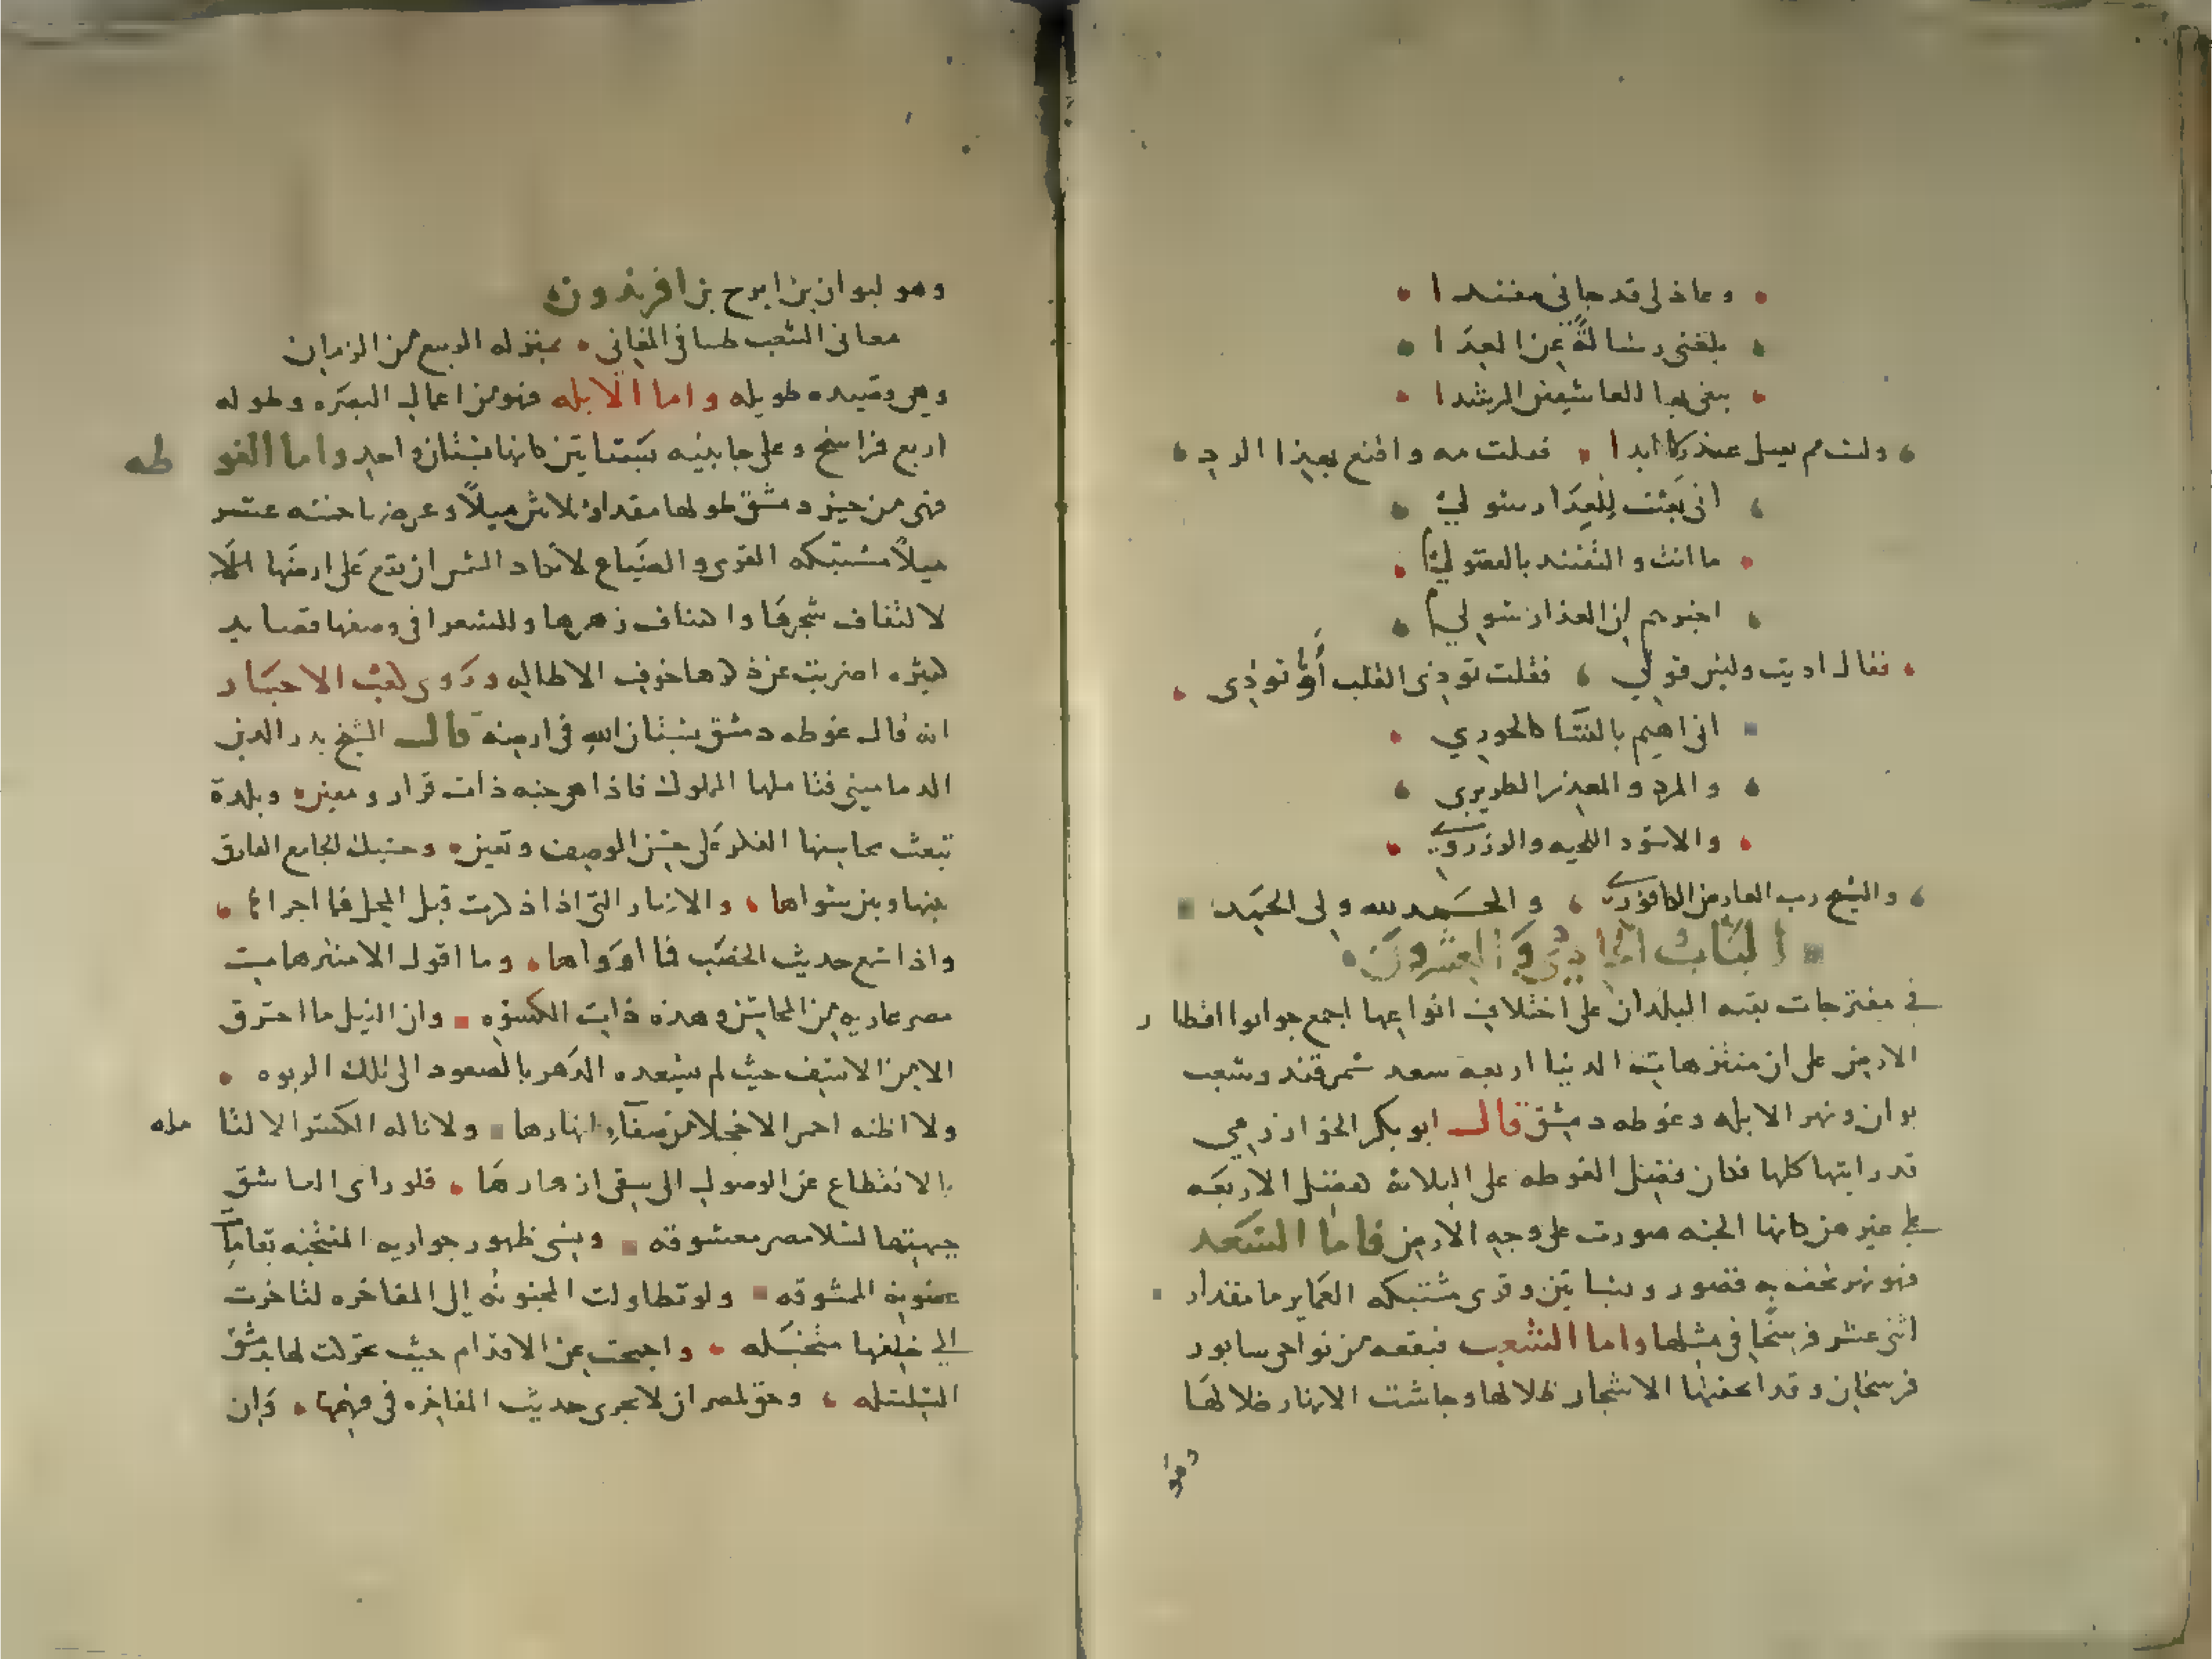 وعاذلي قد جاني مفندا
بلغني رسالة عن العدا
يبغي بها للعاشقين الرشدا
وانت لم يسل عندكا ابدا فقلت مه واقنع بهذا الرد
اني بعثت للعذار سولي
ما انت والتفنيد بالعقول
اخبرهم ان العذار سولي
فقال اديت وليس قولي فقلت توذي القلب او توذى
اني اهيم بالنسا كالحوري
والمرد والمعذر الطريري
والاسود اللحيه والزرزوري
والشيخ رب العارض الكافوري والحمد لله ولي الحمد
الباب الحادي والعشرون
في مفترجات بقيه البلدان على اختلاف انواعها اجمع جوابوا اقطار
الارض على ان منتزهات الدنيا اربعه سعد سمرقند وشعب
بوان ونهر الابله وغوطه دمشق قال ابو بكر الخوارزمي
قد رايتها كلها فكان فضل الغوطه على الثلاثة كفضل الاربعه
على غيرهن كانها الجنه صورت على وجه الارض فاما السعد
فهو نهر تحف به قصور وبساتين وقرى مشتبكه العماير ما مقدار
اثني عشر فرسخا في مثلها واما الشعب فبقعه من نواحي سابور
فرسخان وقد الحفتها الاشجار ظلالها وجاشت الانهار خلالها
وهو
وهو لبوان بن ايرج بن افريدون
مغاني الشعب طيبا في المغاني بمنزله الربيع من الزمان
وهي قصيده طويله واما الابله فهو من اعمال البصره وطوله
اربع فراسخ وعلى جانبيه بساتين كانها بستان واحد واما الغوطه
فهي من حيز دمشق طولها مقدار ثلاثين ميلا وعرضها خمسه عشر
ميلا مشتبكه القرى والضياع لا تكاد الشمس ان تقع على ارضها الا
لالتفاف شجرها واكتناف زهرها وللشعرا في وصفها قصايد
كثيره اضربت عن ذكرها خوف الاطاله وروى كعب الاحبار
انه قال غوطه دمشق بستان الله في ارضه قال الشيخ بدر الدين
الدماميني فتاملها المملوك فاذا هي جنه ذات قرار ومعين وبلدة
تبعث محاسنها الفكر على حسن الوصف وتعين وحسبك الجامع الفارق
بينها وبين سواها والانهار التي اذا ذكرت قبل المحل فما اجراها
واذا سمع حديث الخصب فما ارواها وما اقول الا منتزهات
مصر عاريه من المحاسن وهذه ذات الكسوه وان النيل ما احترق
الا من الاسف حيث لم يسعده الدهر بالصعود الى تلك الربوه
ولا اظنه احمر الا خجلا من صفاء انهارها ولا ناله الكسر الا لتامله
بالانقطاع عن الوصول الى سقي ازهارها فلو راى العاشق
جبهتها لسلا مصر معشوقه ونسي ظهور جواريه المنتخبه بقامات
غصونه الممشوقه ولو تطاولت المجنونه الى المفاخره لتاخرت
الى خلفها متخبله واحجمت عن الاقدام حيث تحركت لها بدمشق
السلسله وحق لمصر ان لا يجرى حديث المفاخره في فهمها وان